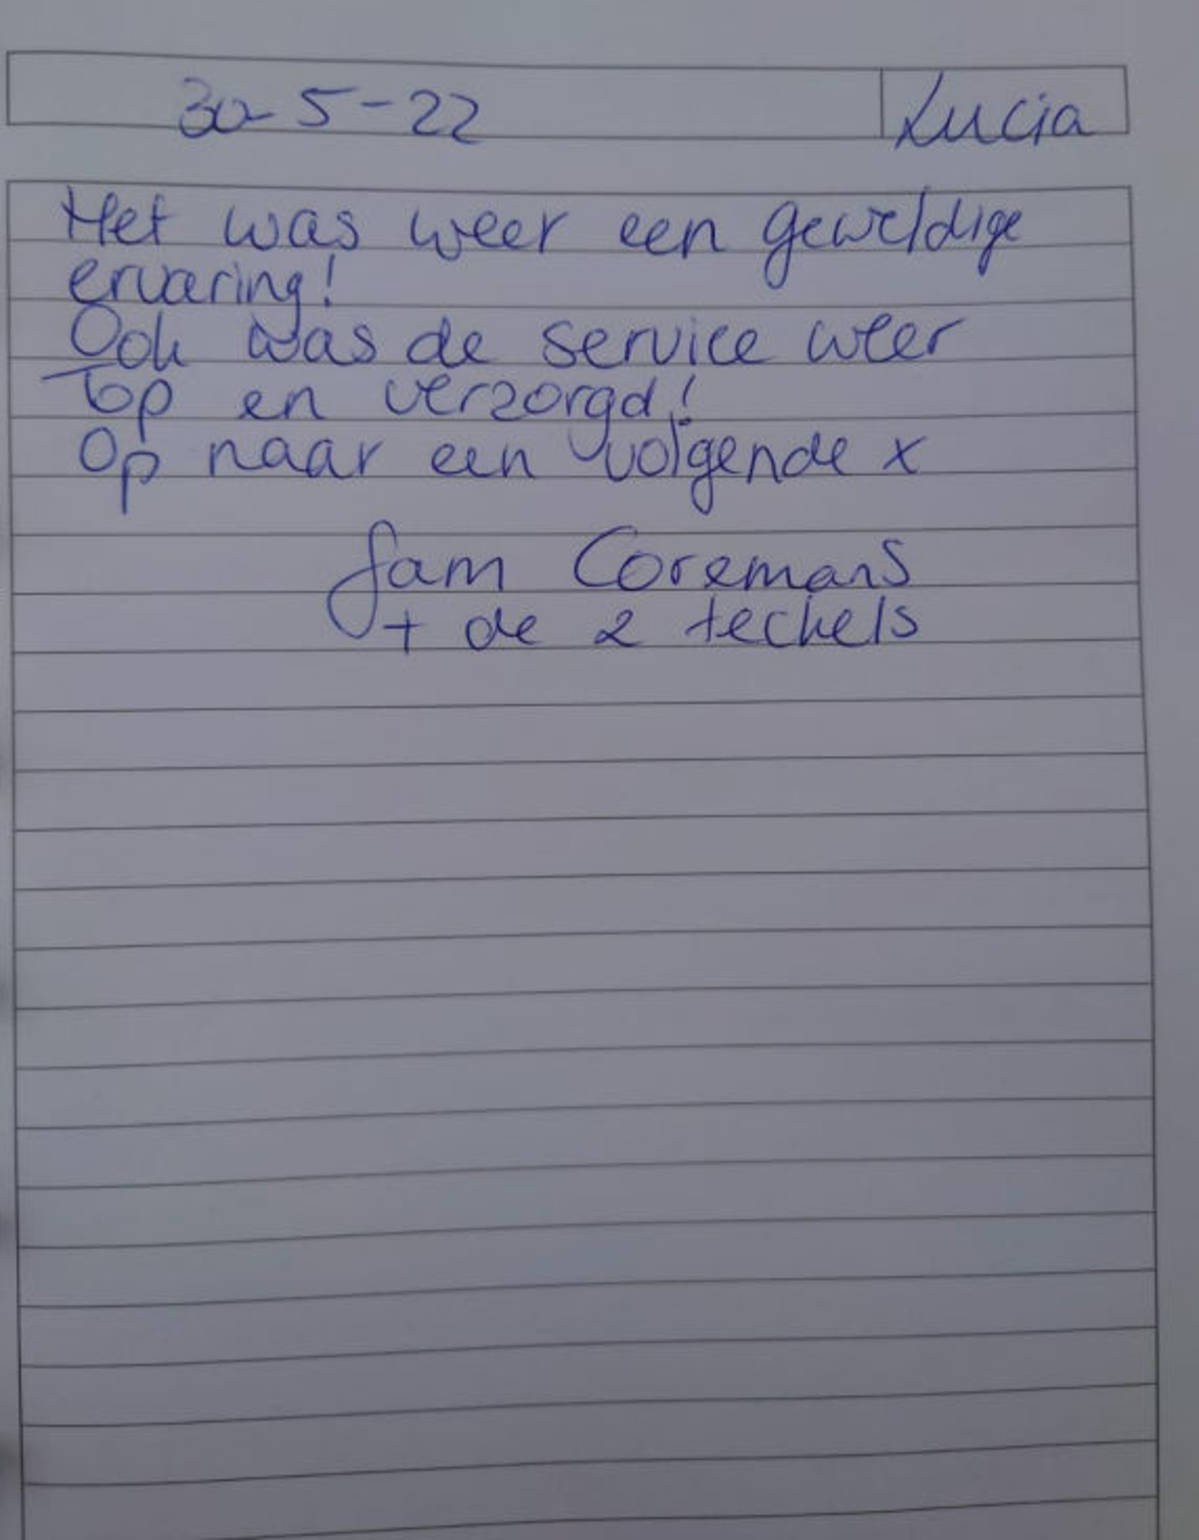 30-5-22 Lucia
Het was weer een geweldige
ervaring!
Ook was de service weer
Top en verzorgd!
Op naar een volgende x
fam Coremans
+ de 2 teckels